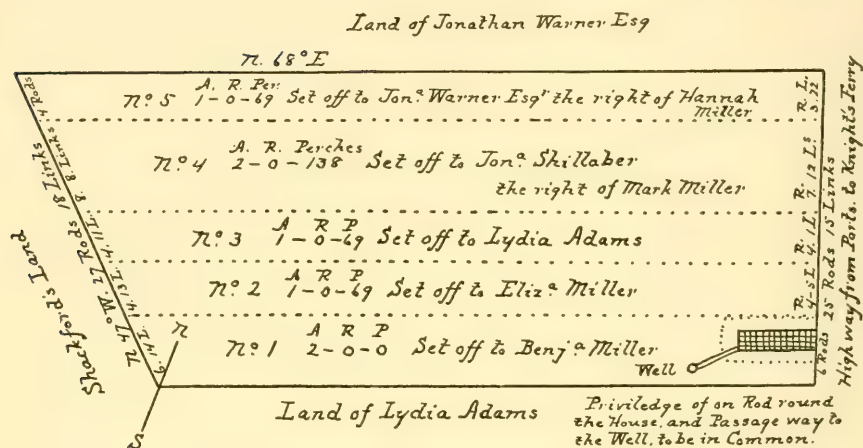 Land of Jonathan Warner Esq
N. 68° E
No. 5 A. R. Per. 1-0-69 Set off to Jona. Warner Esqr the right of Hannah
Miller
No. 4 A. R. Perches 2-0-138 Set off to Jona. Shillaber
the right of Mark Miller
No. 3 A R P 1-0-69 Set off to Lydia Adams
No. 2 A R P 1-0-69 Set off to Eliza. Miller
No. 1 A R P 2-0-0 Set off to Benja. Miller
Well
Land of Lydia Adams
Priviledge of on Rod round
the House, and Passage way to
the Well, to be in Common.
N
S
Shackford's Land
N 47° W. 27 Rods 18 Links
6.4 L. 4.13 L. 4.11 L. 8.8. Links 4 Rods
6 Rods
R. 4-5 L.
R. 4. 1 L.
R. 7. 12 Ls.
R. L. 3.22
25 Rods 15 Links
Highway from Ports. to Knight's Ferry